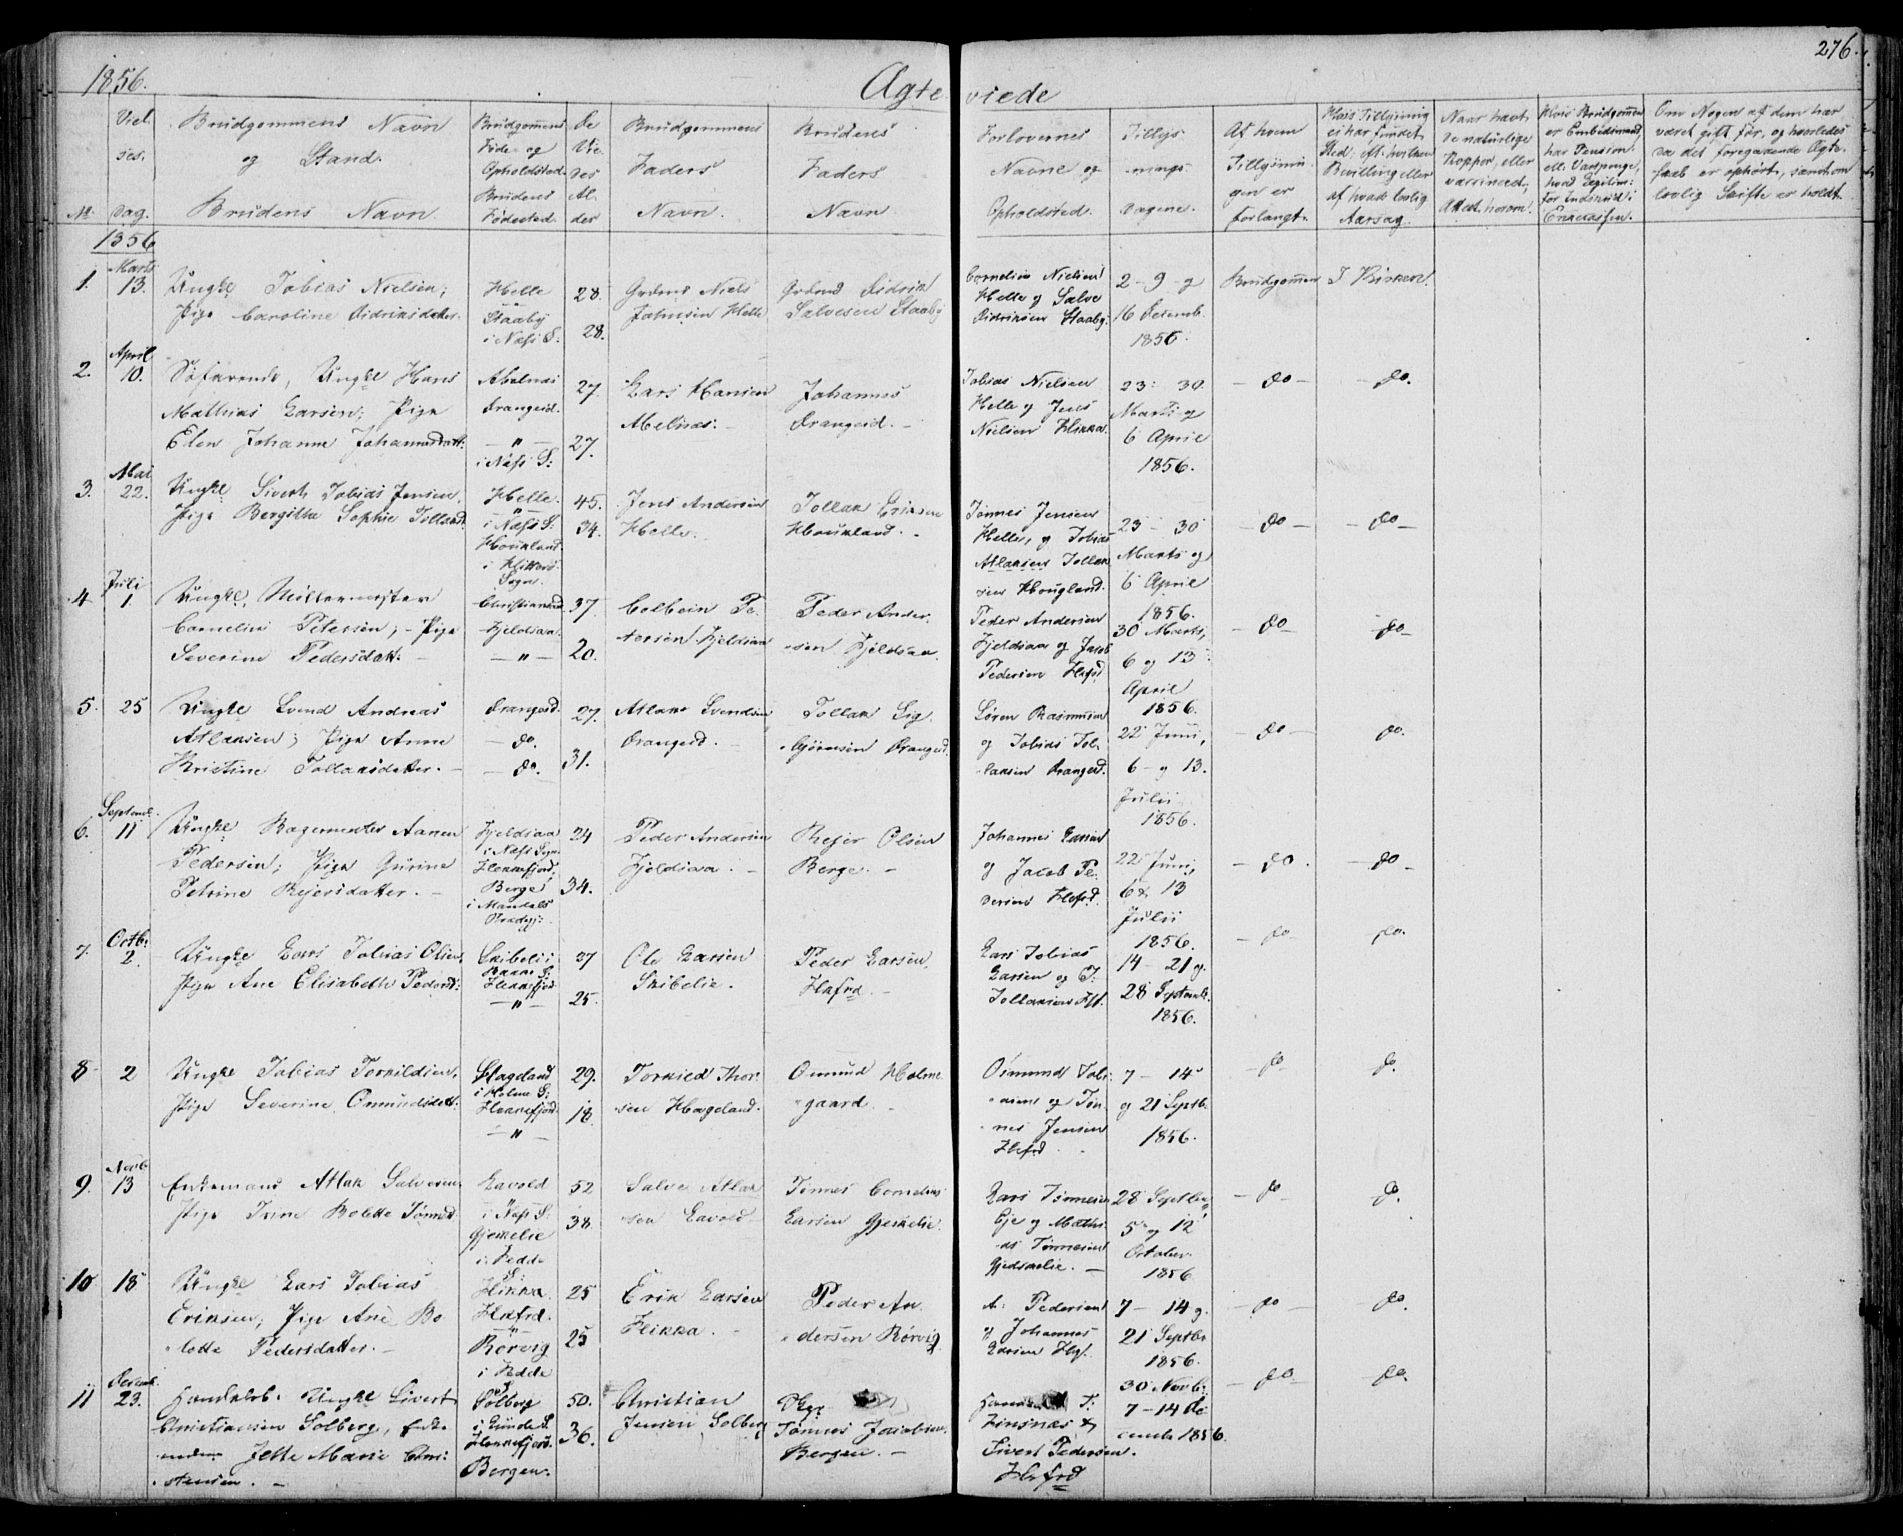 1856.
Ægte
viede
276.
Viel-
ses.
No.
Dag.
Brudgommens Navn
og Stand.
Brudens Navn.
Brudgommens
Føde- og
Opholdsted.
Brudens
Fødested.
De
Vie-
des
Al-
der
Brudgommens
Faders
Navn.
Brudens
Faders
Navn.
Forlovernes
Navne og
Opholdsted.
Tillys-
nings-
Dagene.
Af hvem
Tillysnin-
gen er
forlangt.
Hvis Tillysning
ei har fundet
Sted; Af hvilken
Bevilling eller
af hvad lovlig
Aarsag.
Naar havt
de naturlige
Kopper, eller
vaccineret,
Attest herom.
Hvis Brudgommen
er Embedsmand,
har Pension
ell: Vartpenge,
hvad Legitim:
for Indskud i
Enkekassen.
Om Nogen af dem har
været gift før, og hvorledes
da det foregaaende Ægte-
skab er ophørt, samt om
lovlig Skifte er holdt.
1856
Marts
1. 13. Ungkl Tobias Nielsen;
Pige Caroline Didriksdatter.
Helle
Staaby
i Næss S:
28.
28.
Niels
Jahnsen Helle
Didrik
Salvesen Staaby
Cornelius Nielsen
Helle og Salve
Didriksen Staaby.
2 - 9 - og
16
1856.
Brudgommen
I Kirken.
April
2. 10. Søfarende, Ungkl Hans
Mathias Larsen; Pige
Elen Johanne Johannesdatt:
Abelnæs
Drangeid.
— " —
i Næss S:
27.
27.
Lars Hansen
Abelnæs. -
Johannes
Drangeid. -
Tobias Nielsen
Helle og Jens
Nielsen Flikka.
23 - 30
Marts og
6 April
1856.
— do —
— do.
Mai
3. 22. Ungkl Sivert Tobias Jensen,
Pige Bergithe Sophie Tollaksd
Helle.
— " —
i Næss S:
Houkland.
i Hitterø
Sogn.
45.
34.
Jens Andersen
Helle.
Tollak Eriksen
Houkland. -
Tønnes Jensen
Helle, og Tobias
Atlaksen Tollak-
sen Hougland.
23 - 30
Marts og
6 April
1856.
— do —
— do —
Juli
4 1. Ungkl,
Cornelius Petersen; - Pige
Severine Pedersdatt. -
Christiansand
Fjeldsaa.
— " —
37.
20.
Colbein Pe-
tersen Fjeldsaa
Peder Ander-
sen Fjeldsaa.
Peder Andersen
Fjeldsaa og Jacob
Pedersen Flkfrd
30 Marts,
6 og 13
April
1856.
— do
— do —
5. 25 Ungkl Svend Andreas
Atlaksen; Pige Anne
Kristine Tollaksdatter. -
Drangeid.
— do.
— do.
27.
31.
Atlak Svendsen
Drangeid. -
Tollak Sig-
bjørnsen Drangeid.
Søren Rasmussen
og Tobias Tol-
laksen Drangeid.
22 Juni,
6 - og 13.
Julii
1856.
— do —
do.
Septemb.
6. 11 Ungkl Bagermester Aanen
Pedersen; Pige Gurine
Petrine Rejersdatter. -
Fjeldsaa
i Næss Sogn
Flekkefjord.
Berge
i Mandals
Præstgj:
24
34.
Peder Andersen
Fjeldsaa. -
Rejer Olsen
Berge. -
Johannes Larsen
og Jacob Pe-
dersen Flkfrd.
22 Juni,
6 & 13
Julii
1856.
— do.
— do
Octb:
7. 2. Ungkl Lars Tobias Olsen
Pige Ane Elisabeth Pedersd:
Skibeli i
Flekkefjord
— " —
27
25.
Ole Larsen
Skibelie.
Peder Larsen,
Flkfrd. -
Lars Tobias
Larsen og T:
Tollaksen Flkf.
14 - 21 og
28 Septemb.
1856.
— do
do.
8 2 Ungkl Tobias Torkildsen.
Pige Severine Omundsdatt:
Hageland
i Holme S:
Flekkefjord:
— " —
29.
18.
Torkild Thor-
sen Hageland.
Omund Holme-
gaard.
Omund Tobi-
asen og Tøn-
nes Jensen
Flkfrd
7 - 14
og 21 Septb:
1856.
— do
do.
Novb.
9. 13 Enkemand Atlak Salvesen
Pige Trine Bolette Tønnesd
Lavold
"
i Næss S:
Gjeskelie
i Fedde
S:
52
38.
Salve Atlak-
sen Lavold -
Tønnes Cornelius
Larsen Gjeskelie.
Lars Tønnesen
Eje og Mathi-
as Tønnesen
Gjedskelie. -
28 Septbr,
5 og 12
October
1856
— do
do.
10 18 Ungkl Lars Tobias
Eriksen; Pige Ane Bo-
lette Pedersdatter. -
Flikka
Flkfrd.
— " —
Rørvig
i Fedde
S.
25
25
Erik Larsen
Flikka. -
Peder An-
dersen Rørvig
A. Pedersen
og Johannes
Larsen Flkf.
7 - 14 og
21 Septbr
1856.
— do —
do.
Decemb.
11 23. Ungkl Sivert
Christiansen Solberg, Enke-
Jette Marie Chri-
stensen. -
Solberg
Flekkefjord.
Bergen.
50.
36.
Christian
Jensen Solberg
Tønnes Jacobsen.
Bergen. -
T:
Sivert Pedersen.
Flkfrd
30 Novb:
7 - 14 De-
cemb 1856.
— do —
do.